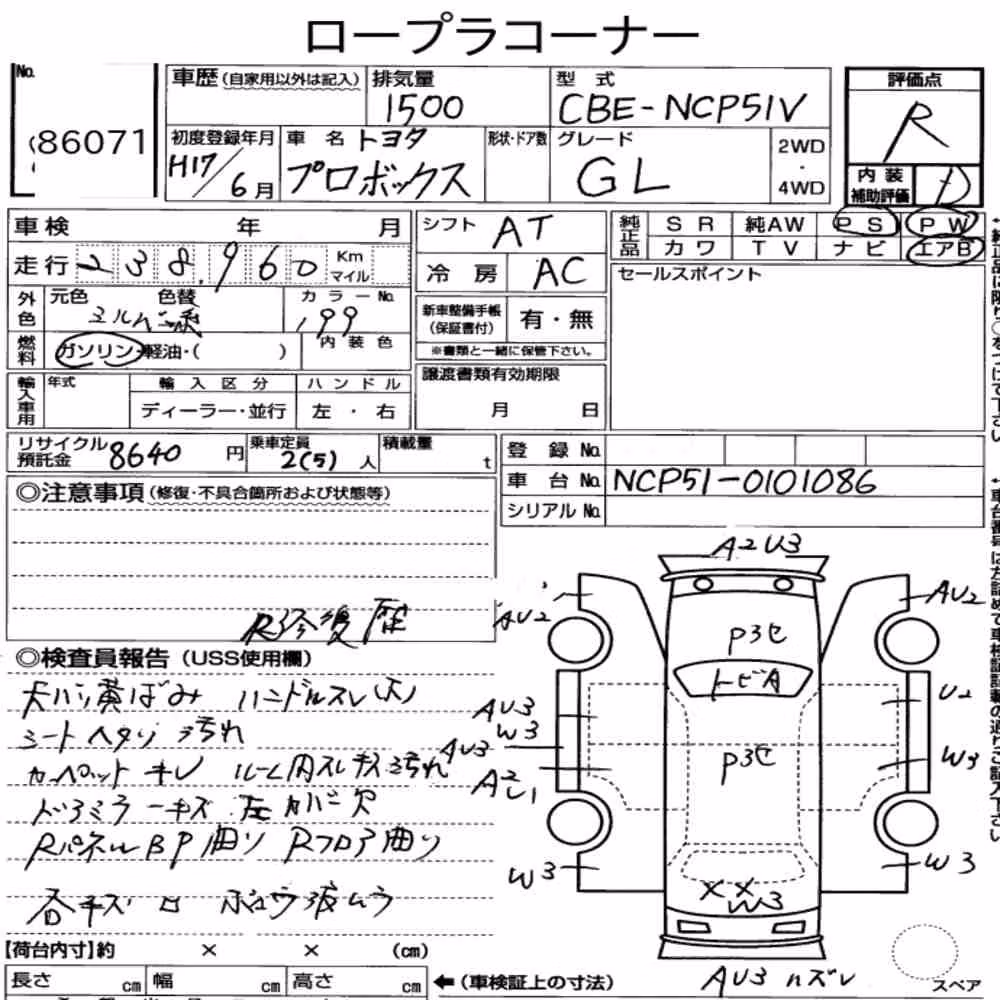 ロープラコーナー
No.
86071
車歴 (自家用以外は記入)
排気量
1500
型式
CBE-NCP51V
評価点
R
初度登録年月
H17/6月
車名 トヨタ
プロボックス
形状・ドア数
グレード
GL
2WD
・
4WD
内装
補助評価
D
車検 年 月
シフト AT
純正品
SR 純AW PS PW
カワ TV ナビ エアB
走行 238,960 Km マイル
冷房 AC
セールスポイント
外色
元色 色替
シルバー系
カラーNo.
199
新車整備手帳
(保証書付)
有・無
※書類と一緒に保管下さい。
燃料
ガソリン・軽油・( )
内装色
輸入車用
年式
輸入区分
ディーラー・並行
ハンドル
左・右
譲渡書類有効期限
月 日
リサイクル
預託金
8640円
乗車定員
2(5)人
積載量
t
登録No.
車台No. NCP51-0101086
シリアルNo.
◎注意事項 (修復・不具合箇所および状態等)
R修復歴
◎検査員報告 (USS使用欄)
黄ばみ ハンドルスレ(大)
シートヘタリ 汚れ
カーペットキレ ルーム内スレキズ汚れ
ドアミラーキズ 左カバー欠
RパネルBP曲り Rフロア曲り
各キズ
A2 U3
AU2
AU2
P3セ
トビA
U2
AU3
W3
AU3
A2
U1
P3セ
W3
W3
W3
XX
W3
AU3 ハズレ
スペア
【荷台内寸】約 × × (cm)
長さ cm 幅 cm 高さ cm
←(車検証上の寸法)